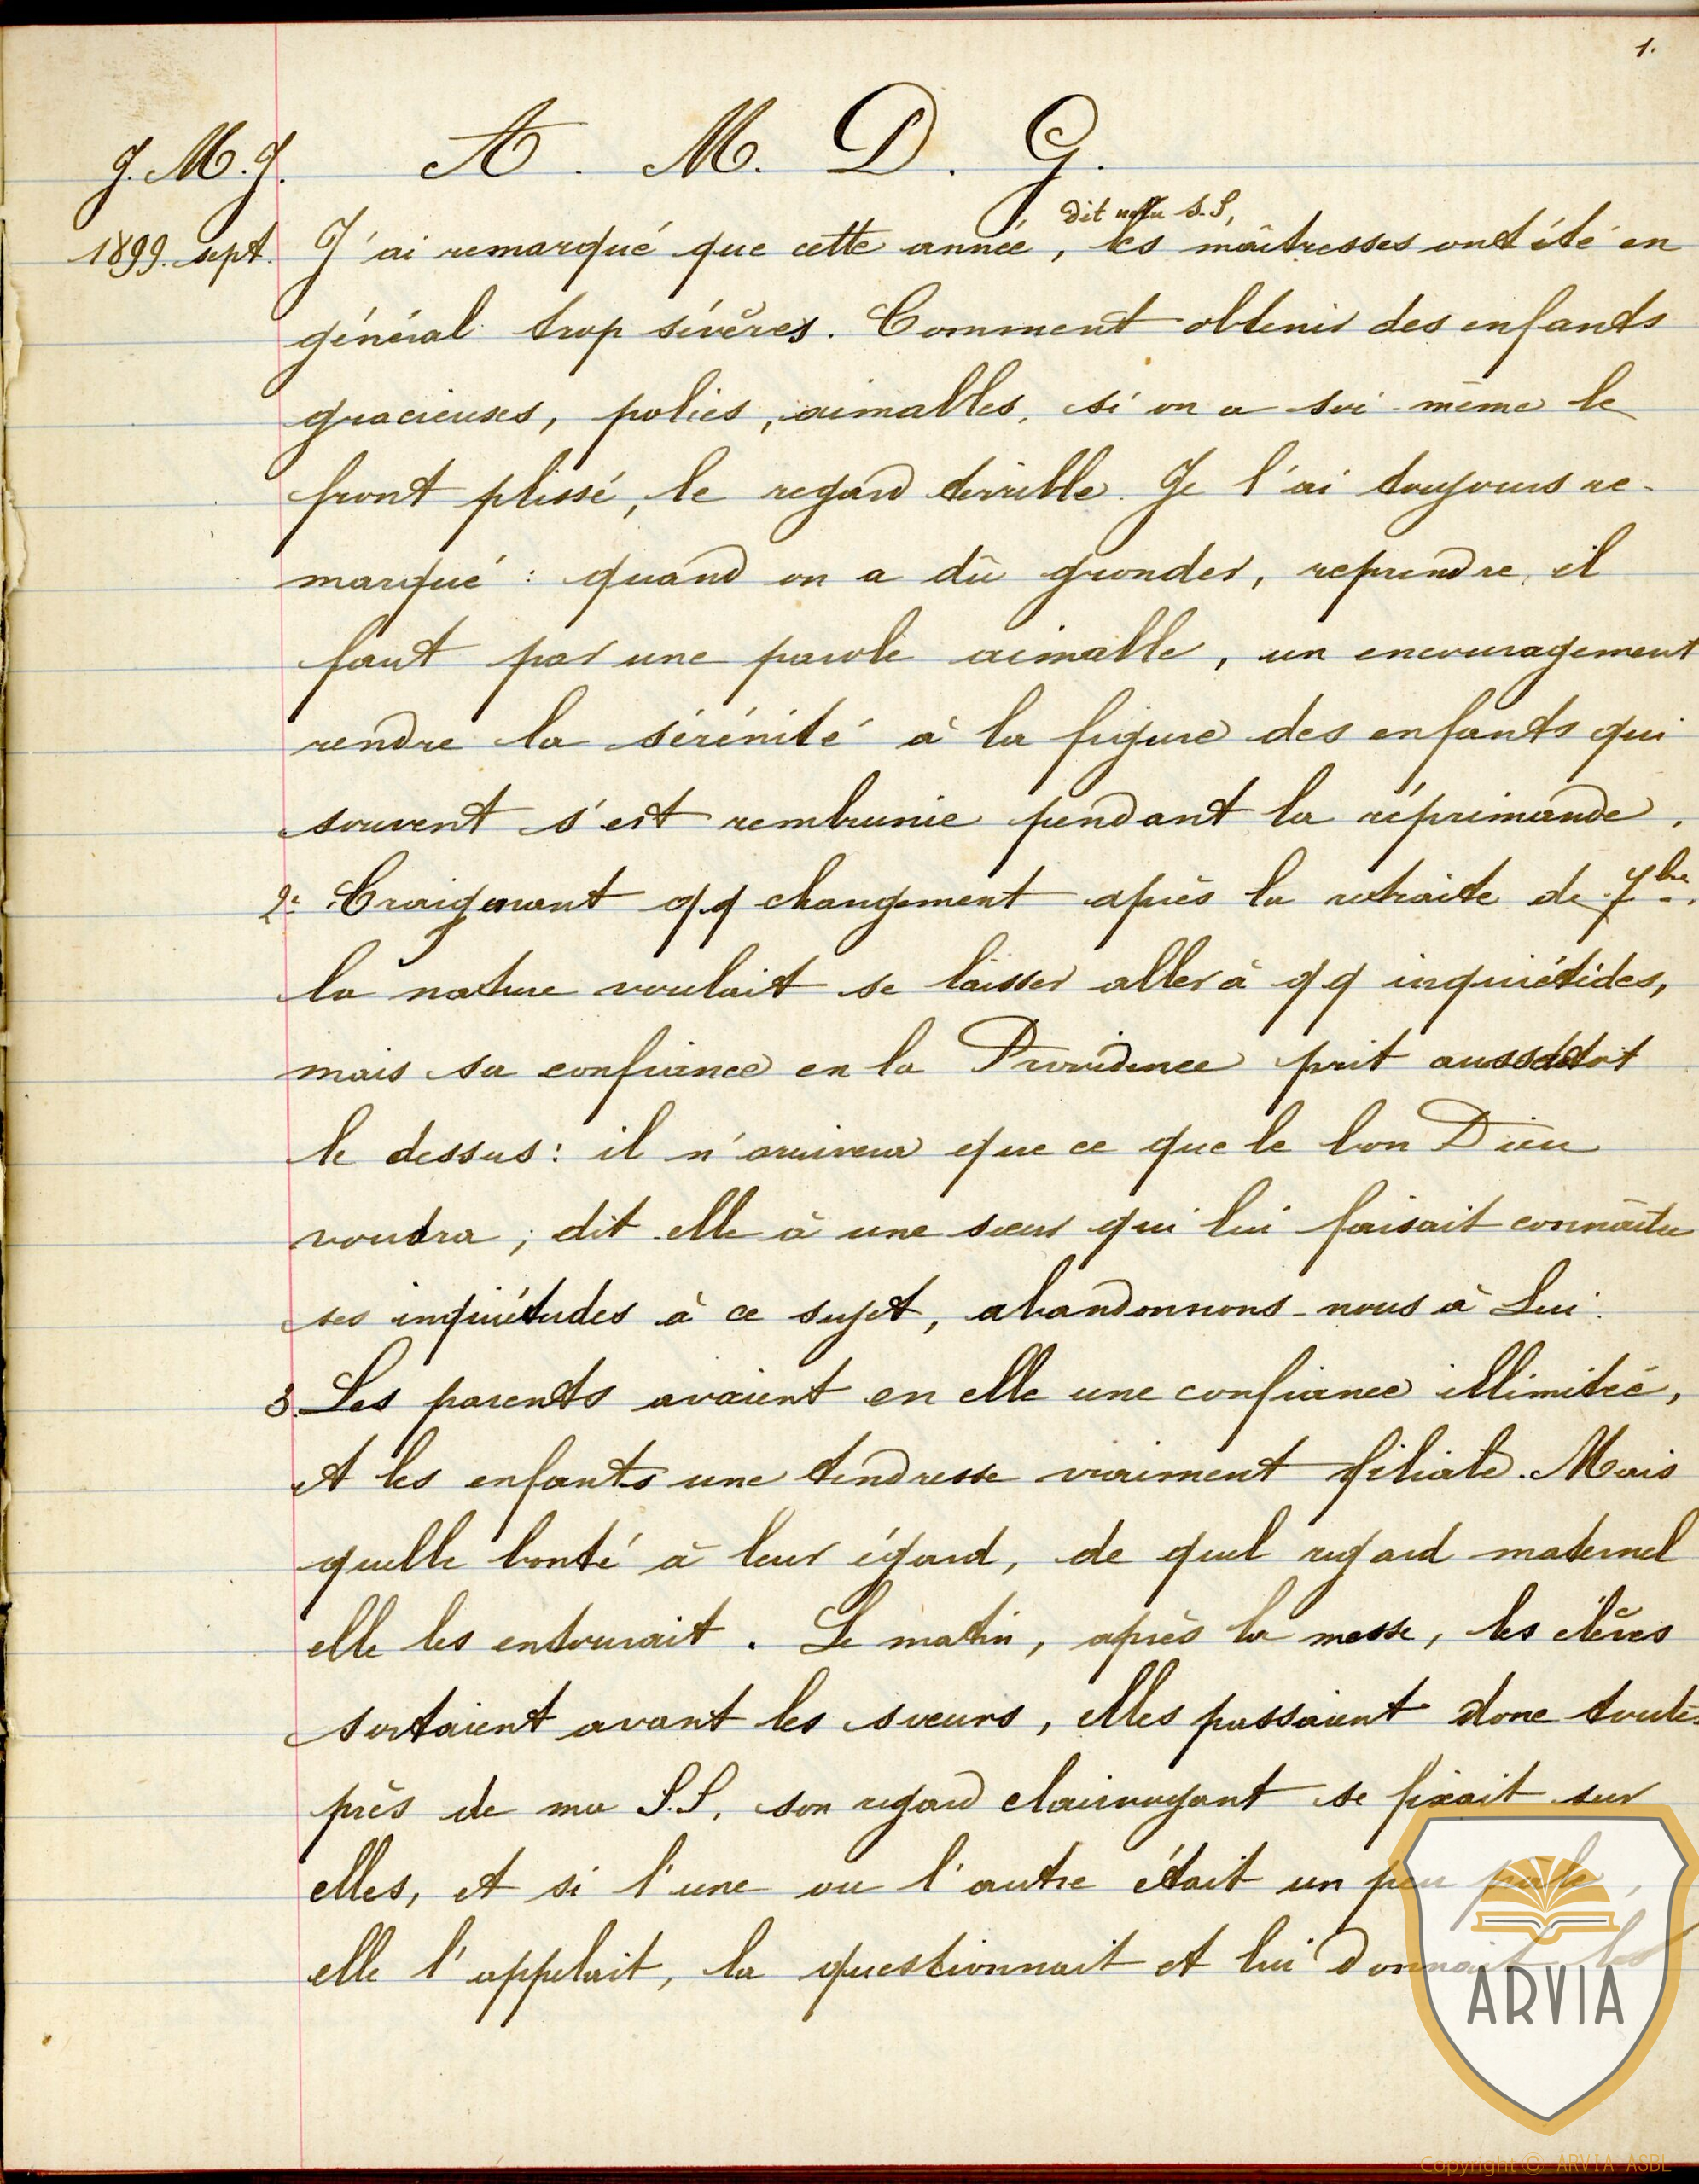 1.
J. M. J. A. M. D. G.
dit notre S. S,
1899. sept. J'ai remarqué que cette année, les maîtresses ont été en
général trop sévères. Comment obtenir des enfants
gracieuses, polies, aimables, si on a soi-même le
front plissé, le regard terrible. Je l'ai toujours re-
marqué : quand on a dû gronder, reprendre, il
faut par une parole aimable, un encouragement
rendre la sérénité à la figure des enfants qui
souvent s'est rembrunie pendant la réprimande.
2. Craignant qq changement après la retraite de 7bre.
la nature voulait se laisser aller à qq inquiétides,
mais sa confiance en la Providence prit aussitôt
le dessus : il n'arrivera que ce que le bon Dieu
voudra ; dit elle à une sœur qui lui faisait connaître
ses inquiétudes à ce sujet, abandonnons-nous à Lui.
3. Les parents avaient en elle une confiance illimitée,
et les enfants une tendresse vraiment filiale. Mais
quelle bonté à leur égard, de quel regard maternel
elle les entourait. Le matin, après la messe, les élèves
sortaient avant les sœurs, elles passaient donc toutes
près de ma S. S, son regard clairvoyant se fixait sur
elles, et si l'une ou l'autre était un peu pale,
elle l'appelait, la questionnait et lui donnait les
ARVIA
Copyright © ARVIA ASBL